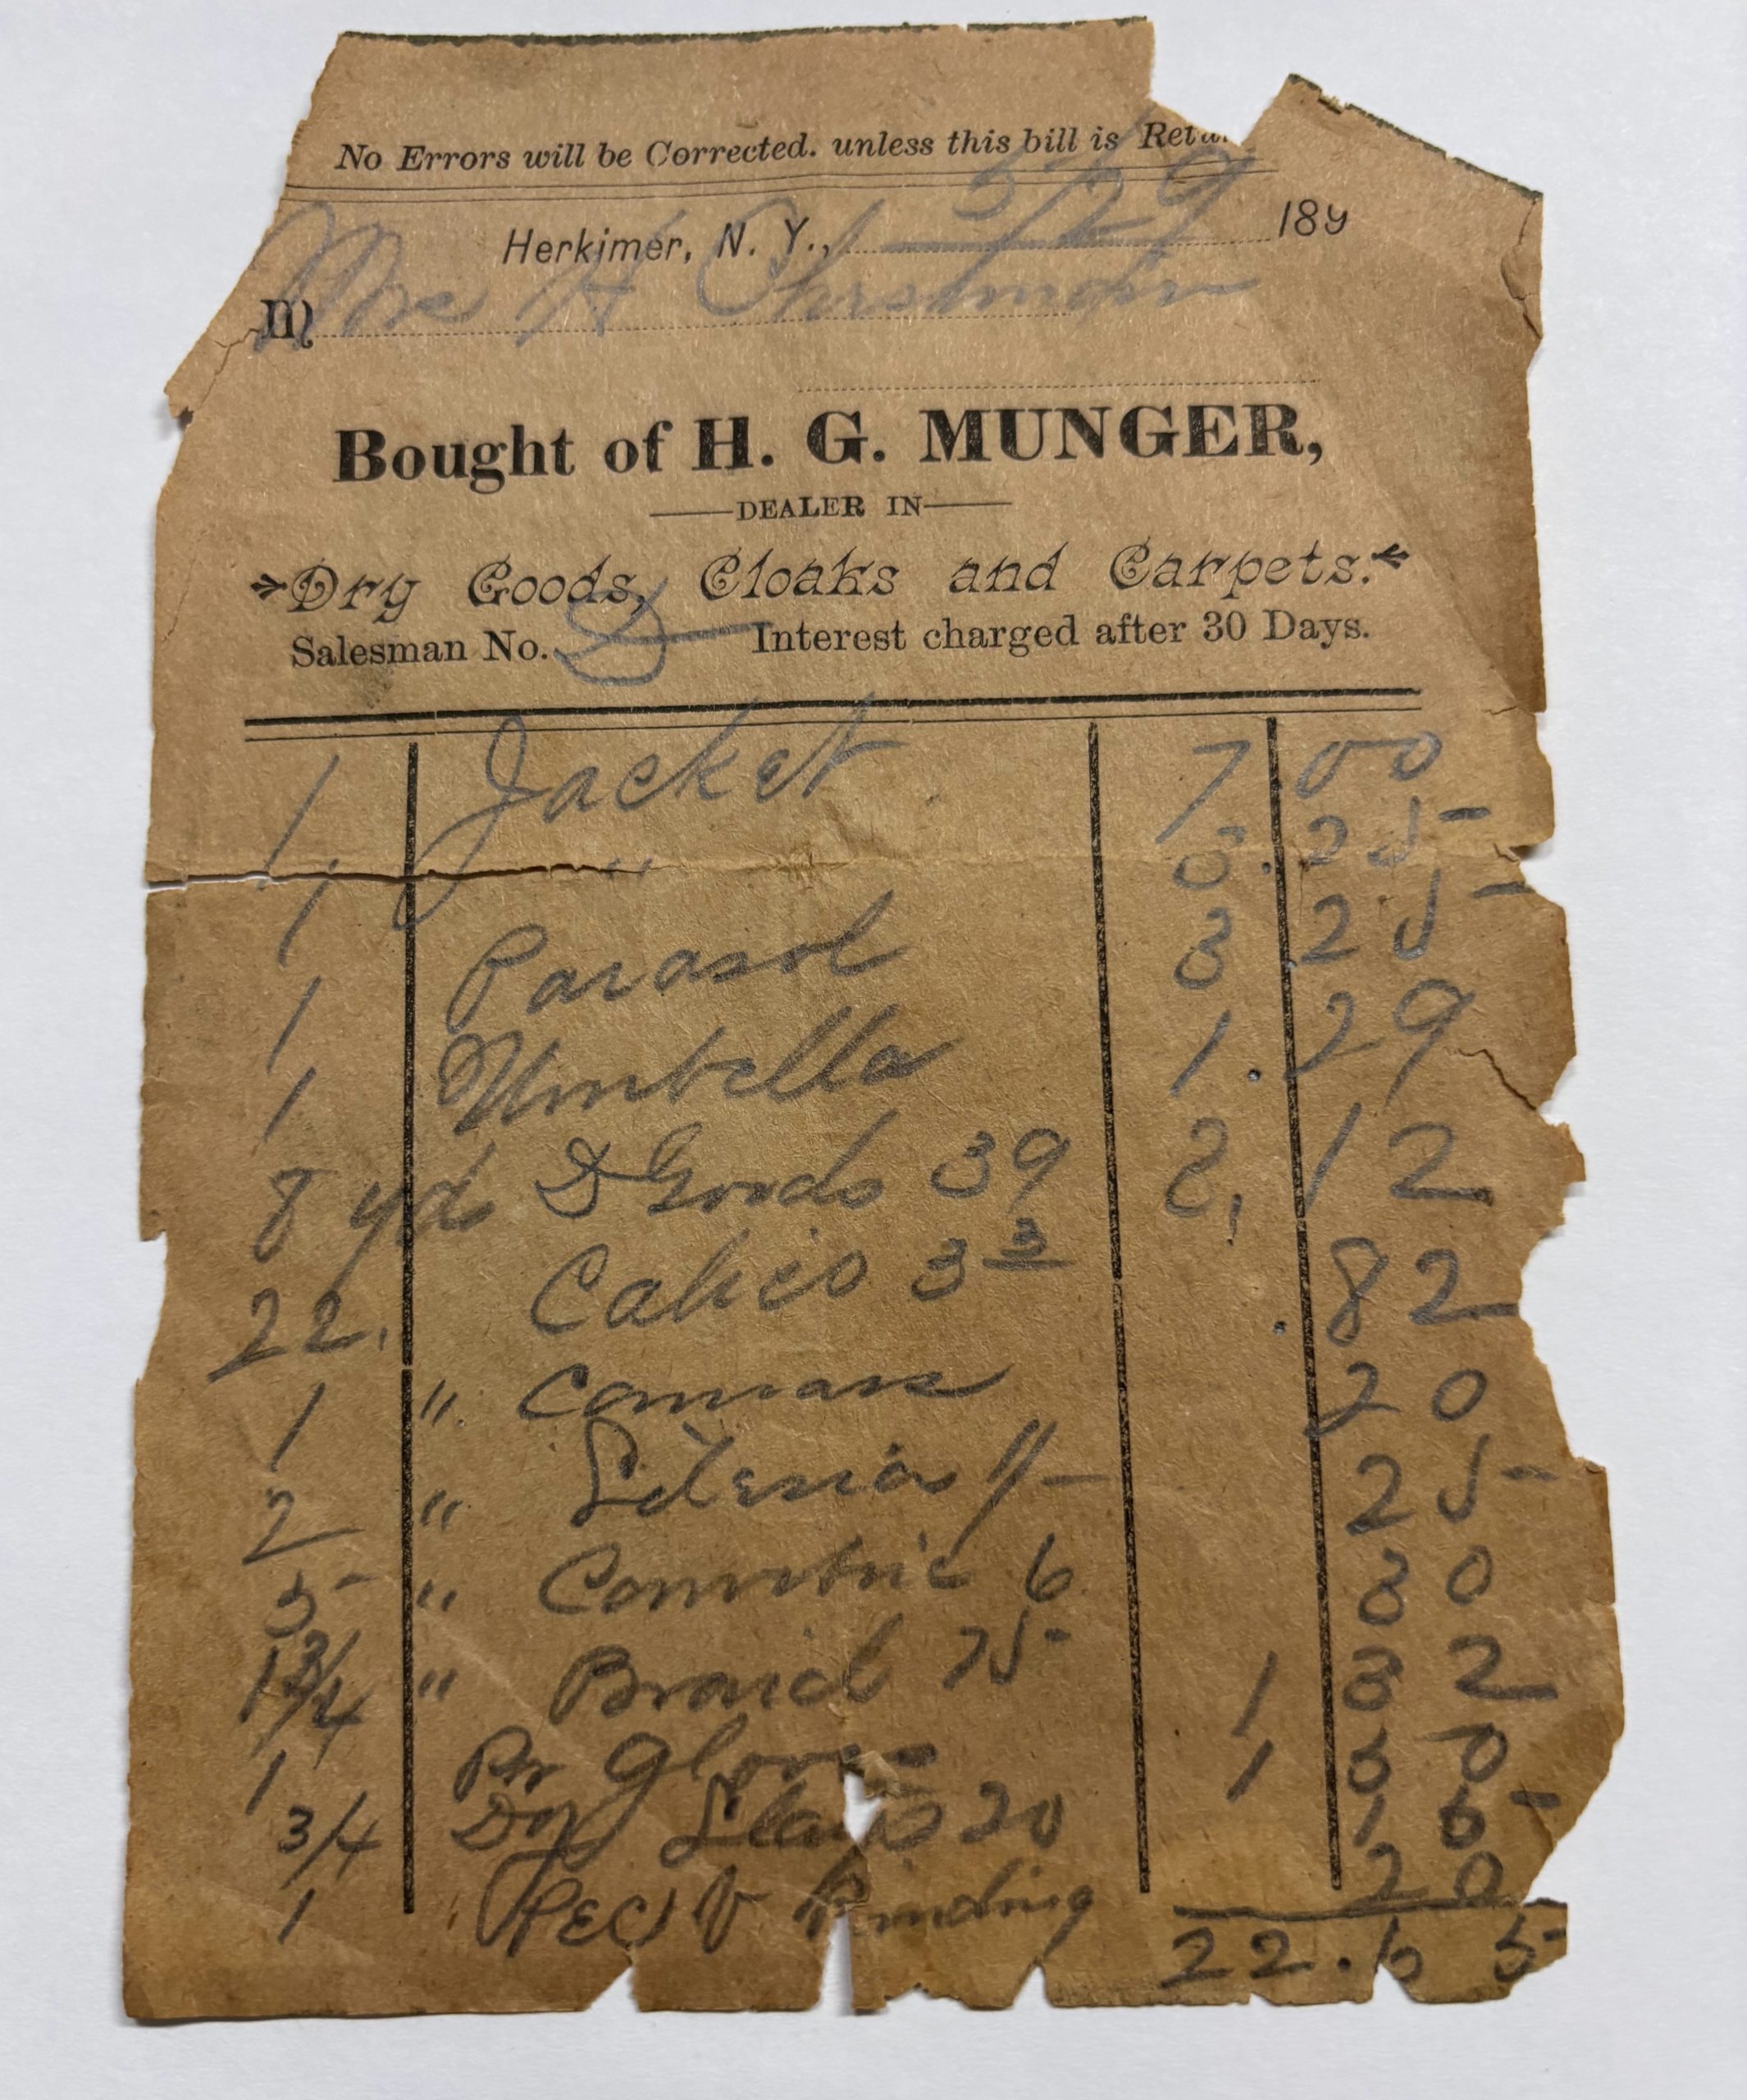 No Errors will be Corrected. unless this bill is
5/29
Herkimer, N. Y., 189
M Mrs H Christman
Bought of H. G. MUNGER,
DEALER IN
Dry Goods, Cloaks and Carpets.
Salesman No. D Interest charged after 30 Days.
1 Jacket 7.00
1 " 3.25
1 Parasol 3 25
1 Umbella 1.29
8 yd D Goods 39 2,12
22, Calico 3 3/4 .82
1 " Canvass 20
2 " Silesia 1/- 25
5 " Cambric 6 30
1 3/4 " Braid 75 1 32
1 Pr Gloves 1 50
3/4 Doz Stays 20 15
1 Pec V Binding 20
22.65